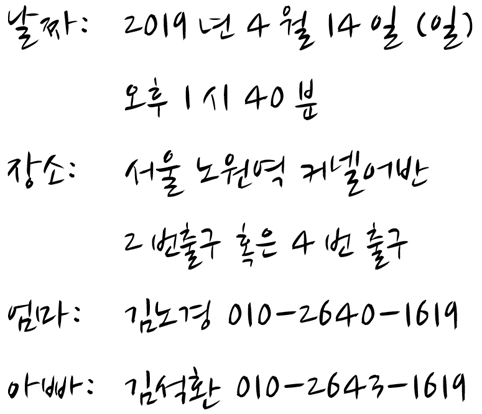 날짜: 2019년 4월 14일 (일)
오후 1시 40분
장소: 서울 노원역 커넬어반
2번출구 혹은 4번 출구
엄마: 김노경 010-2640-1619
아빠: 김석환 010-2643-1619